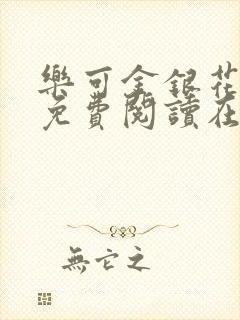 樂可金銀花
免費閱讀在
無它之